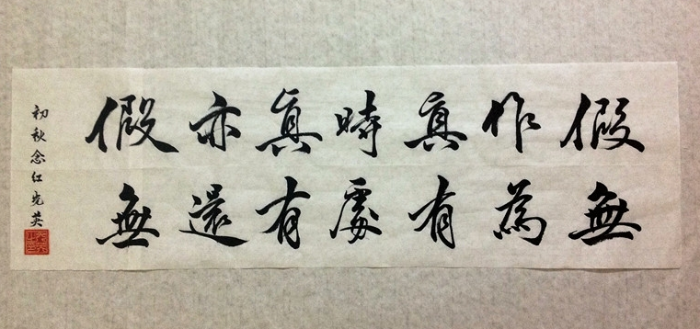 假作真時真亦假
無為有處有還無
初秋念红先英